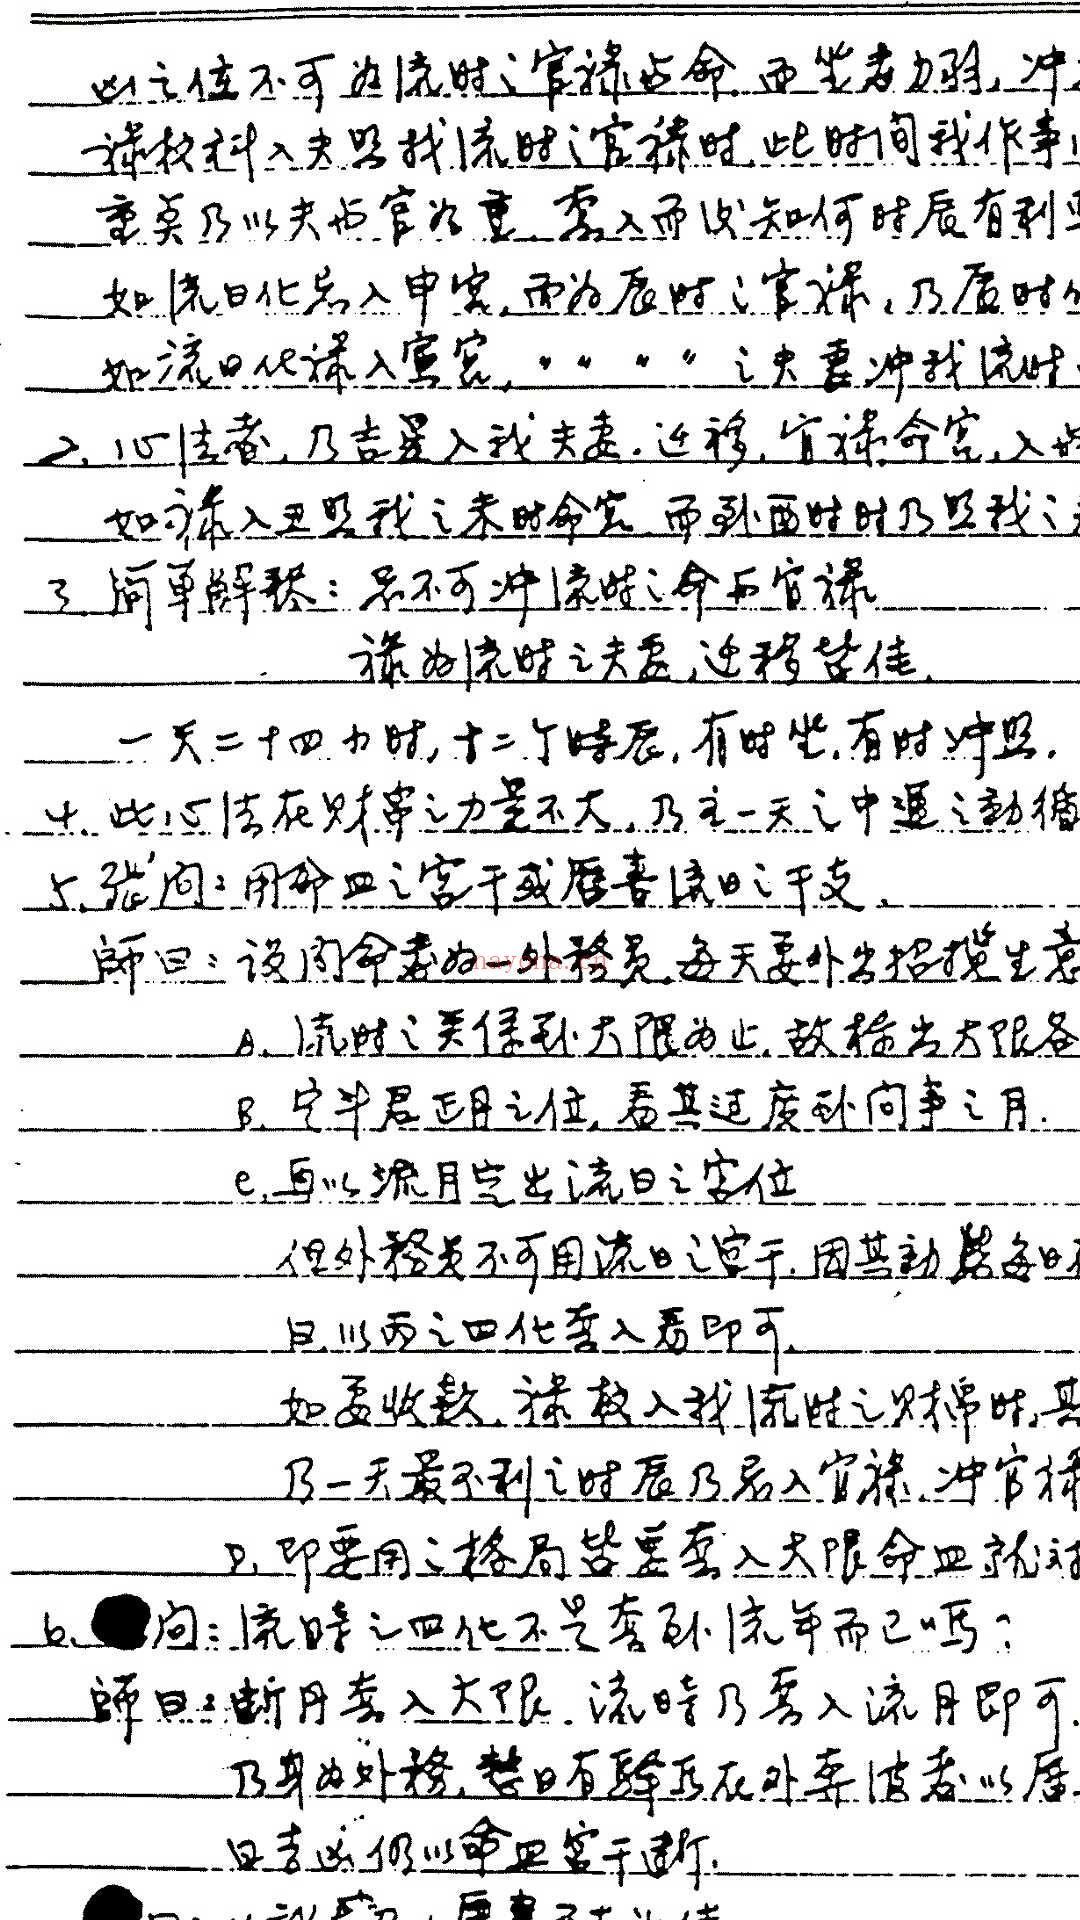 凶之位不可为流时之官禄与命.而坐者力弱,冲
禄权科入夫照我流时之官禄时.此时间我作事
重莫乃以夫与官为重.套入而决知何时辰有利
如流日化忌入申宫.而为辰时之官禄,乃辰时
如流日化禄入寅宫,〃〃〃〃之夫妻冲我流时
2.心法者,乃吉星入我夫妻.迁移.官禄.命宫,入
如禄入丑照我之未时命宫.而到酉时时乃照我之
3.简单解释:忌不可冲流时之命与官禄
禄为流时之夫妻,迁移皆佳.
一天二十四小时,十二个時辰,有时坐.有时冲照.
4.此心法在财帛之力量不大,乃主一天之中運之動循
5.張问:用命盘之宫干或曆書流日之干支.
師曰:设问命者为一外務員.每天要外出招攬生意
A.流时之关係到大限为止.故标出大限各
B.定斗君正月之位,看其过度到问事之月.
C.再以流月定出流日之宫位
但外務員不可用流日之宫干.因其動態每日
日.以丙之四化套入看即可.
如要收款.禄权入我流时之财帛时,其
乃一天最不利之时辰乃忌入官禄.冲官禄
D.即要用之格局皆要套入大限命盘就对
6. 问:流時之四化不是套到流年而已嗎?
師曰:断月套入大限.流時乃套入流月即可.
乃身为外務,整日有驛馬在外奔波者以曆
日吉凶仍以命盘宫干断.